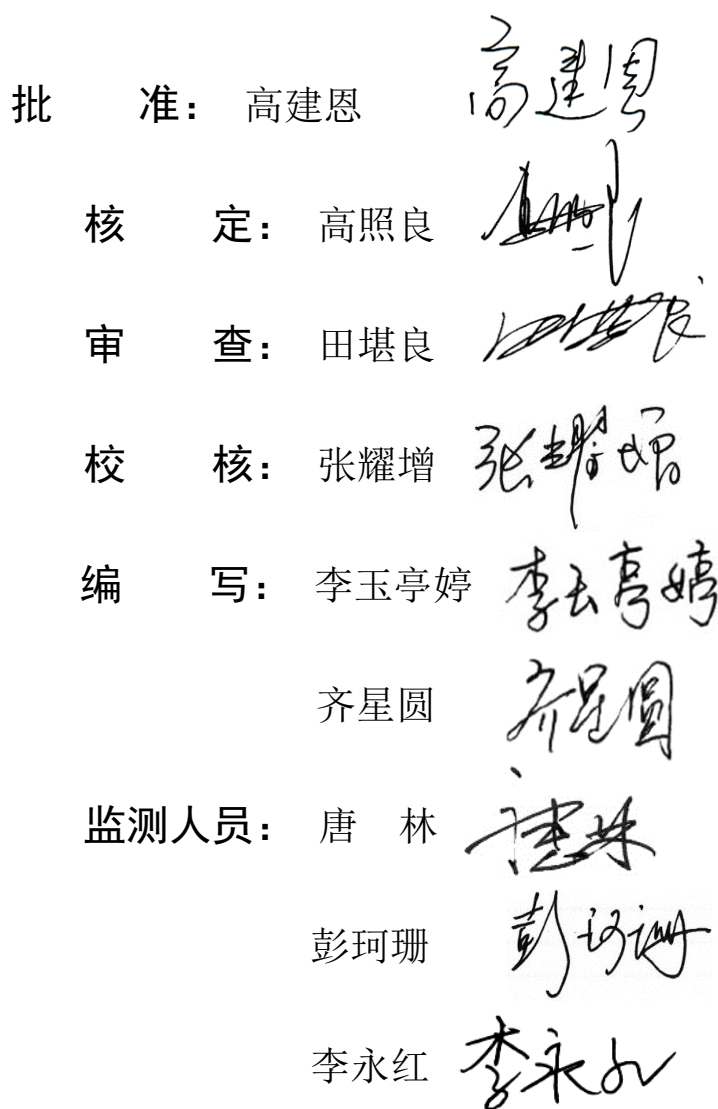 批 准： 高建恩 高建恩
核 定： 高照良
审 查： 田堪良 田堪良
校 核： 张耀增 张耀增
编 写： 李玉亭婷 李玉亭婷
齐星圆 齐星圆
监测人员： 唐 林 唐林
彭珂珊 彭珂珊
李永红 李永红